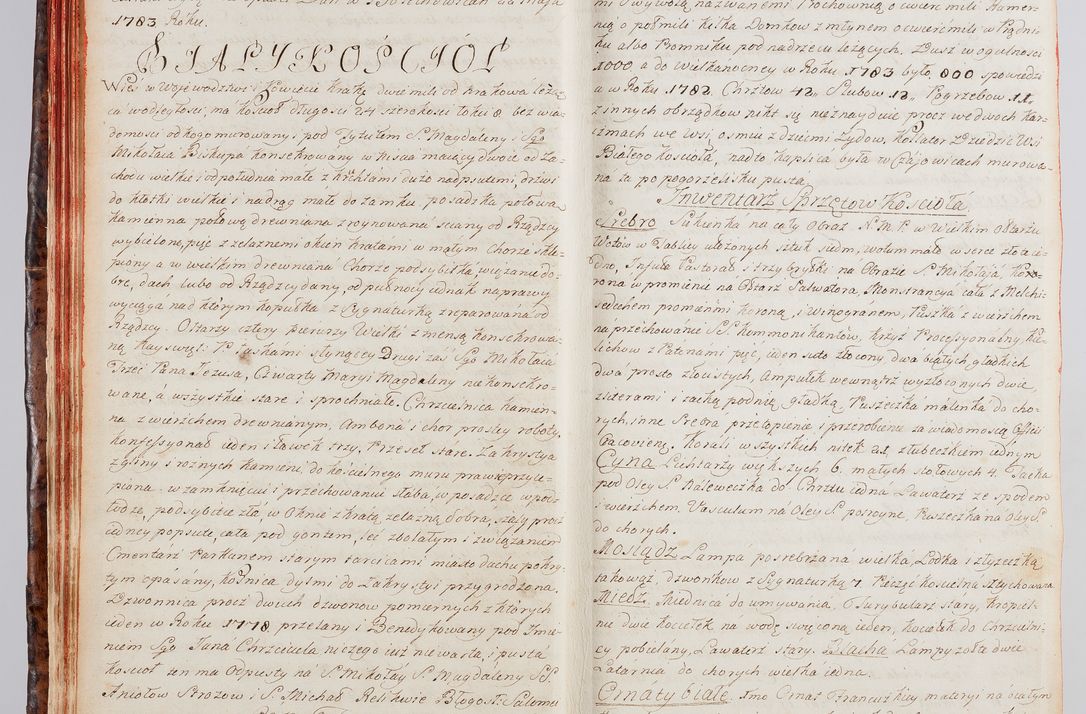 1783 Roku.
BIAŁY KOŚCIOŁ
Wieś w Woiewodztwie i Powiecie Krakow: dwie mili od Krakowa leżą-
ca w odległości, ma Kościoł długości 24 szerokości łokci 8. bez wia-
domości od kogo murowany, pod Tytułem S. Magdaleny i Sgo
Mikołaia Biskupa konsekrowany w Niścia maiący dwoie od za-
chodu wielkie i od południa małe z kruchtami dużo nadpsutemi, drzwi
do kłotki wielkie i na drąg małe do zamku, posadzka połowa
kamienna połową drewniana zroynowana, sciany od Rządzcy
wybielone, pięć z zelaznemi okien kratami w małym Chorze skle-
piony a w wielkim drewniana Chorze podsybitka, wiązanie do-
bre, dach lubo od Rządzcy dany, od pułnocy iednak naprawy
wyciąga nad którym kopułka z Sygnaturką zreparowana od
Rządzcy. Ołtarzy cztery pierwszy Wielki z mensą konsekrowa-
ną Nayswięt: P. łaskami słynącey Drugi zas Sgo Mikołaia
Trzeci Pana Jezusa, Czwarty Maryi Magdaleny na konsekro-
wane, a wszystkie stare i sprochniałe. Chrzcielnica kamien-
na z wierzchem drewnianym. Ambona i chor prostey roboty.
konfessyonał ieden i ławek trzy. Krzeseł stare. Zakrystya
z gliny i roznych kamieni, do kościelnego muru prawie przycze-
piona, w zamknięciu i przechowaniu słaba, w posadzce wpoł-
łodze, podsybitce zła, w Oknie z kratą zelazną dobra, szafy procz
iedney popsute, cała pod gontem, lec zbolałym i związaniem
Cmentarz Parkanem starym tarcicami miasto dachu pokry-
tym opasany, kośnica dylmi do Zakrystyi przygrodzona.
Dzwonnica procz dwuch dzwonow pomiernych z których
ieden w Roku 1778 przelany i Benedykowany pod Imie-
niem Sgo Jana Chrzciciela niczego iuż nie warta, i pusta
kościoł ten ma Odpusty na S. Mikołay S. Magdaleny SS.
Aniołow Strozow i S. Michał Relikwie Błogosł: Salomei
mi Dwywołą nazwanemi Prochownią o cwierć mili Hamer-
nią o poł mili kilka Domkow z młynem o cwierć mili w Prądni-
ku albo Promniku pod nadrzeciu leżących. Dusz w ogulności
1000 a do Wielkanocney w Roku 1783 było 800 spowiedzi
a w Roku 1782. Chrztow 42,, Slubow 12,, Pogrzebow 11,,
z innych obrządkow nikt się nieznayduie procz we dwoch kar-
czmach we wsi, osmiu z dziećmi Żydow, Kollator Dziedzic Wsi
Białego kościoła, nadto kaplica była w Czajowicach murowa-
na ta po pogorzelisku pusta.
Inwentarz Sprzętow Kościoła
Srebro Sukienka na cały Obraz N. M. P. w Wielkim Ołtarzu
Wotow w Tablicy ułozonych sztuk siedm, wotum małe w serce złote ie-
dno, Infuła Pastorał i trzy brybki na Obrazie S. Mikołaia Ko-
rona w promienie na Ołtarz Salwatora, Monstrancya cała z Melchi-
sedechem promieńmi koroną i Winogranem, Puszka z wierzchem
na przechowanie SS. Kommonikantow, krzyż Processyonalny, Kie-
lichow z Patenami pięć, ieden suto złocony dwa białych gładkich
dwa prosto złocistych, Ampułek wewnątrz wyzłoconych dwie
z literami i tacką podnię gładką, Puszeczka maleńka do cho-
rych, inne Srebra przetopienie i przerobienie za wiadomoscią Officii
Cracoviens. Korali wszystkich nitek 21, z słubeczkiem iednym
Cyna Lichtarzy większych 6. małych stołowych 4. Tacka
pod Oley S. Naleweczka do Chrztu iedna Lawaterz ze spodem
i wierzchem. Vasculum na Oley S. potroyne, Puszeczka na Oley S.
do chorych.
Mosiądz Lampa posrebrzana wielka, Łodka i z łyzeczką
takowąż, dzwonkow z Sygnaturką 7. Pieczęć kościelna sztychowana
Miedz. Miednica do umywania, Turybularz stary, kropiel-
nie dwie kociełek na wodę swięconą ieden, kociełek do Chrzcielni-
cy pobielany, Lawaterz stary. Blacha Lampy zołte dwie
Latarnia do chorych wielka iedna.
Ornaty białe. 1mo Ornat Francuskiey materyi na białym